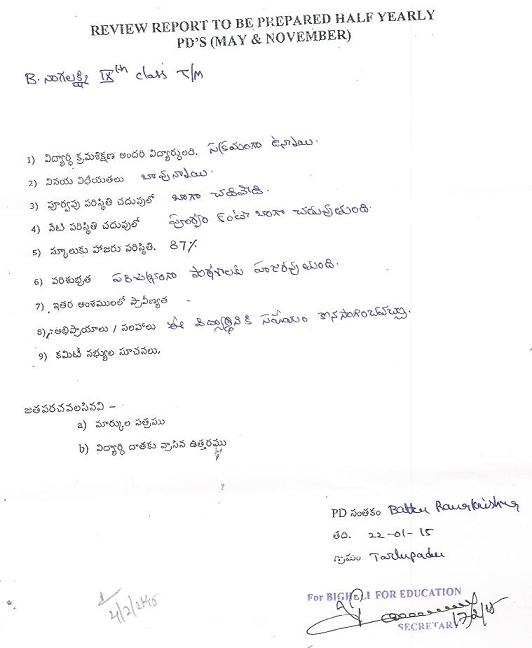 REVIEW REPORT TO BE PREPARED HALF YEARLY
PD'S (MAY & NOVEMBER)
B. నాగలక్ష్మి IXth class T/M
1) విద్యార్థి క్రమశిక్షణ అందరి విద్యార్థులది. సక్రమంగా ఉన్నాయి.
2) వినయ విధేయతలు బావున్నాయి.
3) పూర్వపు పరిస్థితి చదువులో బాగా చదివేది.
4) నేటి పరిస్థితి చదువులో పూర్వం కంటే బాగా చదువుతుంది.
5) స్కూలుకు హాజరు పరిస్థితి. 87%
6) పరిశుభ్రత పరిశుభ్రంగా పాఠశాలకు హాజరవుతుంది.
7) ఇతర అంశములలో ప్రావీణ్యత -
8) అభిప్రాయాలు / సలహాలు ఈ విద్యార్థినికి సహాయం కొనసాగించవచ్చు.
9) కమిటీ సభ్యుల సూచనలు.
జతపరచవలసినవి –
a) మార్కుల పత్రము
b) విద్యార్థి దాతకు వ్రాసిన ఉత్తరము
PD సంతకం Battu Ramakrishna
తేది. 22-01-15
గ్రామం Tarlupadu
For BIGHELP FOR EDUCATION
SECRETARY